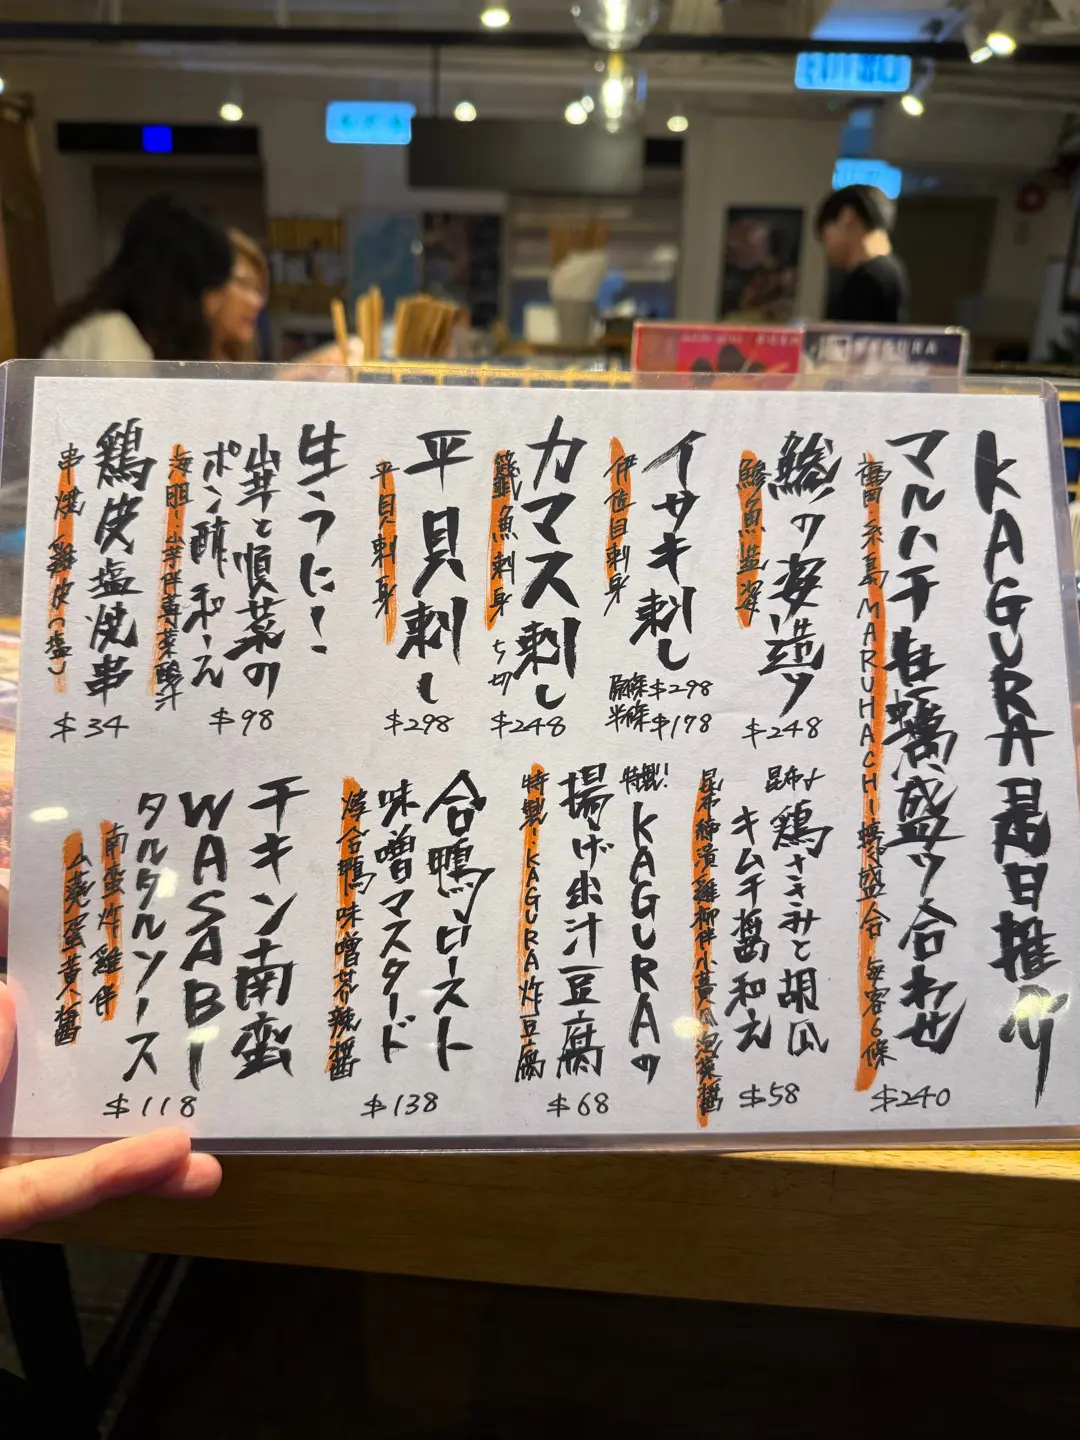 KAGURA是日推介
マルハチ牡蠣盛り合わせ
福岡・糸島MARUHACHI蠔盛合 每客6條
$240
鯵の姿造り
鯵魚盛姿
$248
イサキ刺し
伊佐目刺身
原條$298
半條$178
カマス刺し
魚刺身 5切
$248
平貝刺し
平貝刺身
$298
生うに!
山芋と順菜の
ポン酢和え
海胆・山芋伴蓴菜酸汁
$98
鶏皮塩焼串
串燒 雞皮(塩)
$34
昆布〆
鶏ささみと胡瓜
キムチ醤和え
昆布締漬雞柳伴小青瓜泡菜醬
$58
特製!
KAGURAの
揚げ出汁豆腐
特製・KAGURA炸豆腐
$68
合鴨ロースト
味噌マスタード
燒合鴨味噌芥辣醬
$138
チキン南蛮
WASABI
タルタルソース
南蛮炸雞伴
山葵蛋黃醬
$118